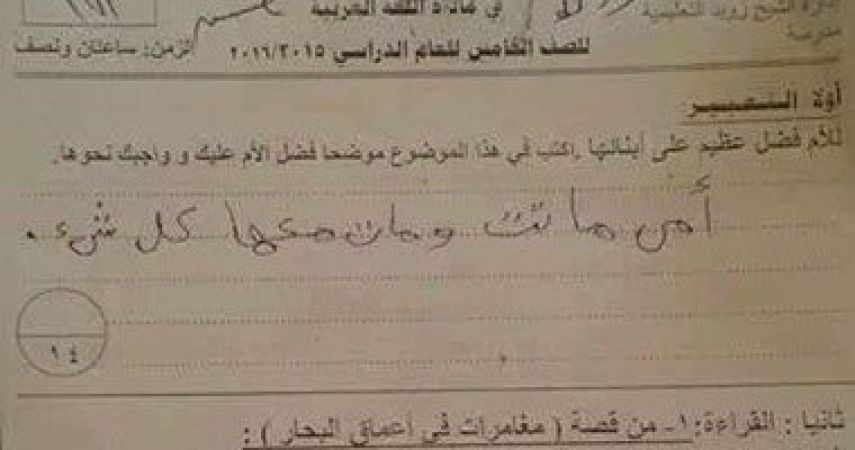 إدارة الشيخ زويد التعليمية
في مادة اللغة العربية
مدرسة
للصف الخامس للعام الدراسي ٢٠١٦/٢٠١٥
الزمن: ساعتان ونصف
أولا التعبير:
للأم فضل عظيم على أبنائها .اكتب في هذا الموضوع موضحا فضل الأم عليك و واجبك نحوها.
أمي ماتت ومات معها كل شيء.
١٤
ثانيا : القراءة: ١- من قصة ( مغامرات في أعماق البحار ) :